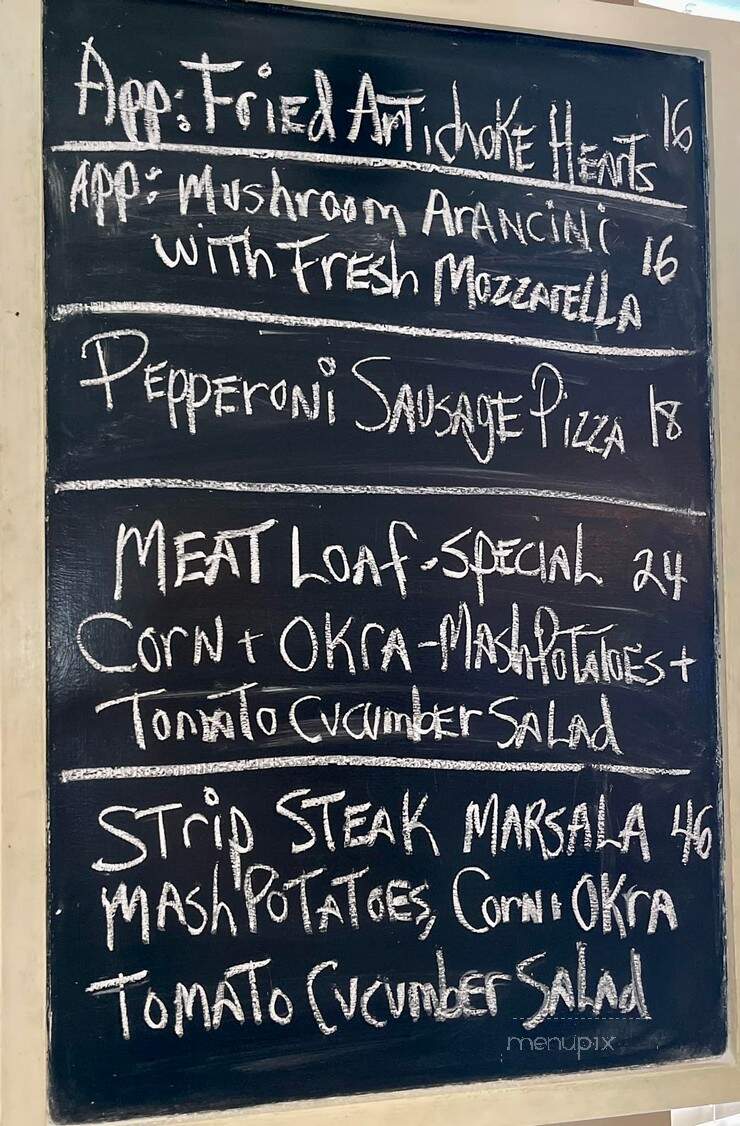 App: Fried Artichoke Hearts 16
App: Mushroom Arancini
with Fresh Mozzarella 16
Pepperoni Sausage Pizza 18
Meat Loaf - Special 24
Corn + Okra - Mash Potatoes +
Tomato Cucumber Salad
Strip Steak Marsala 46
Mash Potatoes, Corn + Okra
Tomato Cucumber Salad
menupix